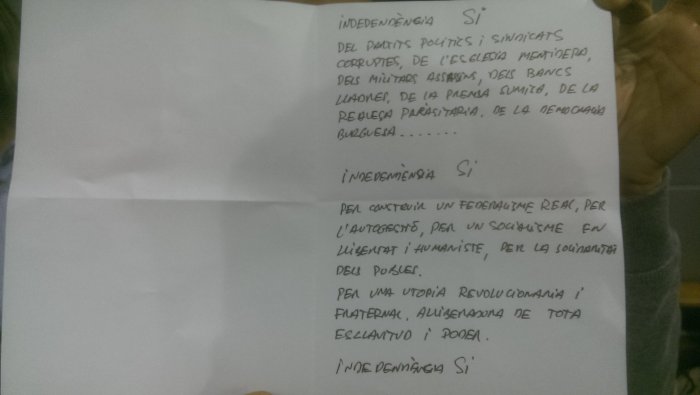 INDEPENDÈNCIA SI
DEL PARTITS POLÍTICS I SINDICATS
CORRUPTES, DE L'ESGLESIA MENTIDERA,
DELS MILITARS ASSASSINS, DELS BANCS
LLADRES, DE LA PRENSA SUMISA, DE LA
REALESA PARÀSITARIA, DE LA DEMOCRACIA
BURGUESA.......
INDEPENDÈNCIA SI
PER CONSTRUIR UN FEDERALISME REAL, PER
L'AUTOGESTIÓ, PER UN SOCIALISME EN
LLIBERTAT I HUMANISTE, PER LA SOLIDARITAT
DELS POBLES.
PER UNA UTOPIA REVOLUCIONARIA I
FRATERNAL. ALLIBERADORA DE TOTA
ESCLAVITUD I PODER.
INDEPENDÈNCIA SI